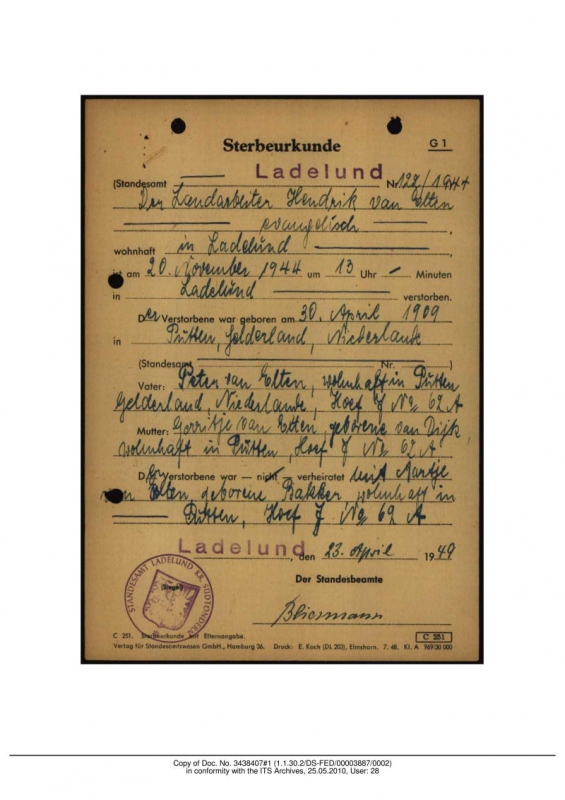 Sterbeurkunde
G 1
Ladelund
(Standesamt Nr. 127/1944
Der Landarbeiter Hendrik van Elten
evangelisch,
wohnhaft in Ladelund,
ist am 20. November 1944 um 13 Uhr — Minuten
in Ladelund verstorben.
Der Verstorbene war geboren am 30. April 1909
in Putten, Gelderland, Niederlande
(Standesamt Nr. )
Vater: Peter van Elten, wohnhaft in Putten
Gelderland, Niederlande, Hoef J No 62 A
Mutter: Gerritje van Elten, geborene van Dijk,
wohnhaft in Putten, Hoef J No 62 A
Der Verstorbene war — nicht — verheiratet mit Aartje
van Elten, geborene Bakker, wohnhaft in
Putten, Hoef J No 69 A
Ladelund, den 23. April 1949
(Siegel)
STANDESAMT LADELUND KR. SÜDTONDERN
Der Standesbeamte
C 251. Sterbeurkunde mit Elternangabe.
C 251
Verlag für Standesamtswesen GmbH., Hamburg 36. Druck: E. Koch (DL 203), Elmshorn. 7. 48. Kl. A 969/30 000
Copy of Doc. No. 3438407#1 (1.1.30.2/DS-FED/00003887/0002)
in conformity with the ITS Archives, 25.05.2010, User: 28